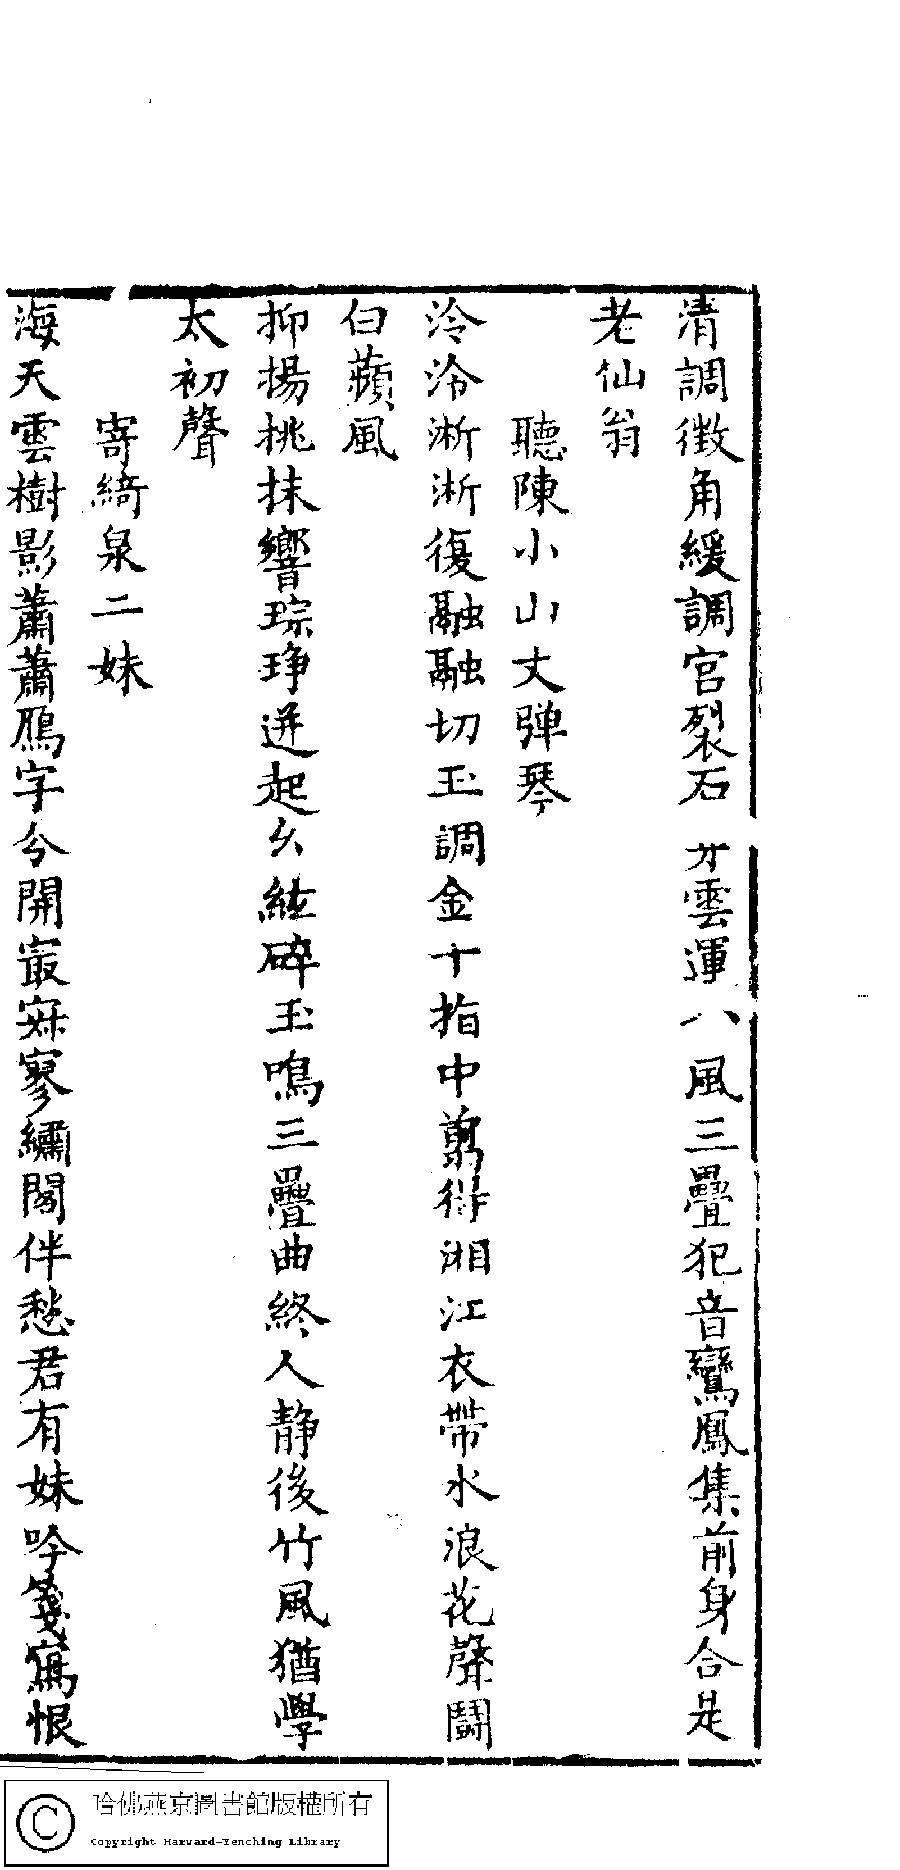 清調徴角緩調宮裂石 牙雲運八風三疊犯音鸞鳳集前身合是
老仙翁
聽陳小山丈弾琴
泠泠淅淅復融融切玉調金十指中剪得湘江衣帶水浪花聲鬭
白蘋風
抑揚挑抹響琮琤迸起幺絃碎玉鳴三疊曲終人静後竹風猶學
太初聲
寄綺泉二妹
海天雲樹影蕭蕭鴈字今開最寂寥繡閣伴愁君有妹吟箋寫恨
哈佛燕京圖書館版權所有
Copyright Harvard-Yenching Library